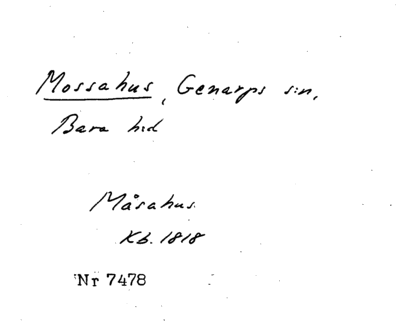 Mossahus, Genarps s:n,
Bara hd
Måsahus.
Kb. 1818
Nr 7478